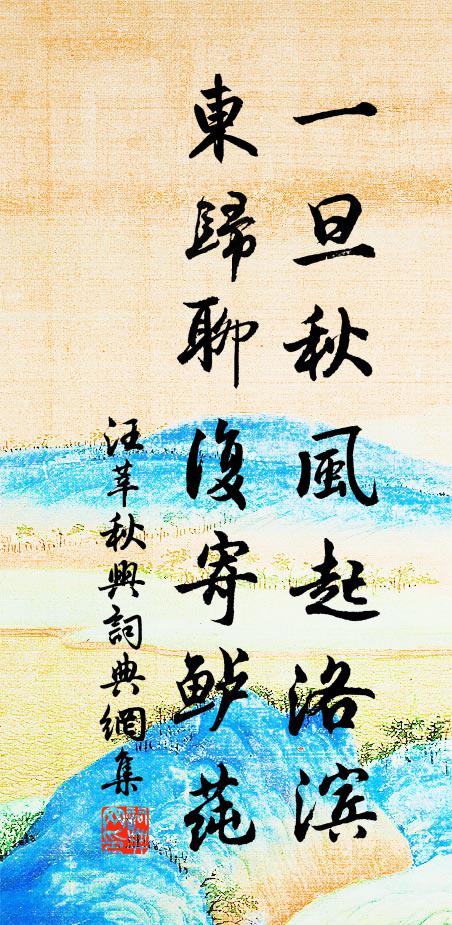 一旦秋風起洛滨
東歸聊復寄鲈莼
汪莘秋興詞典網集